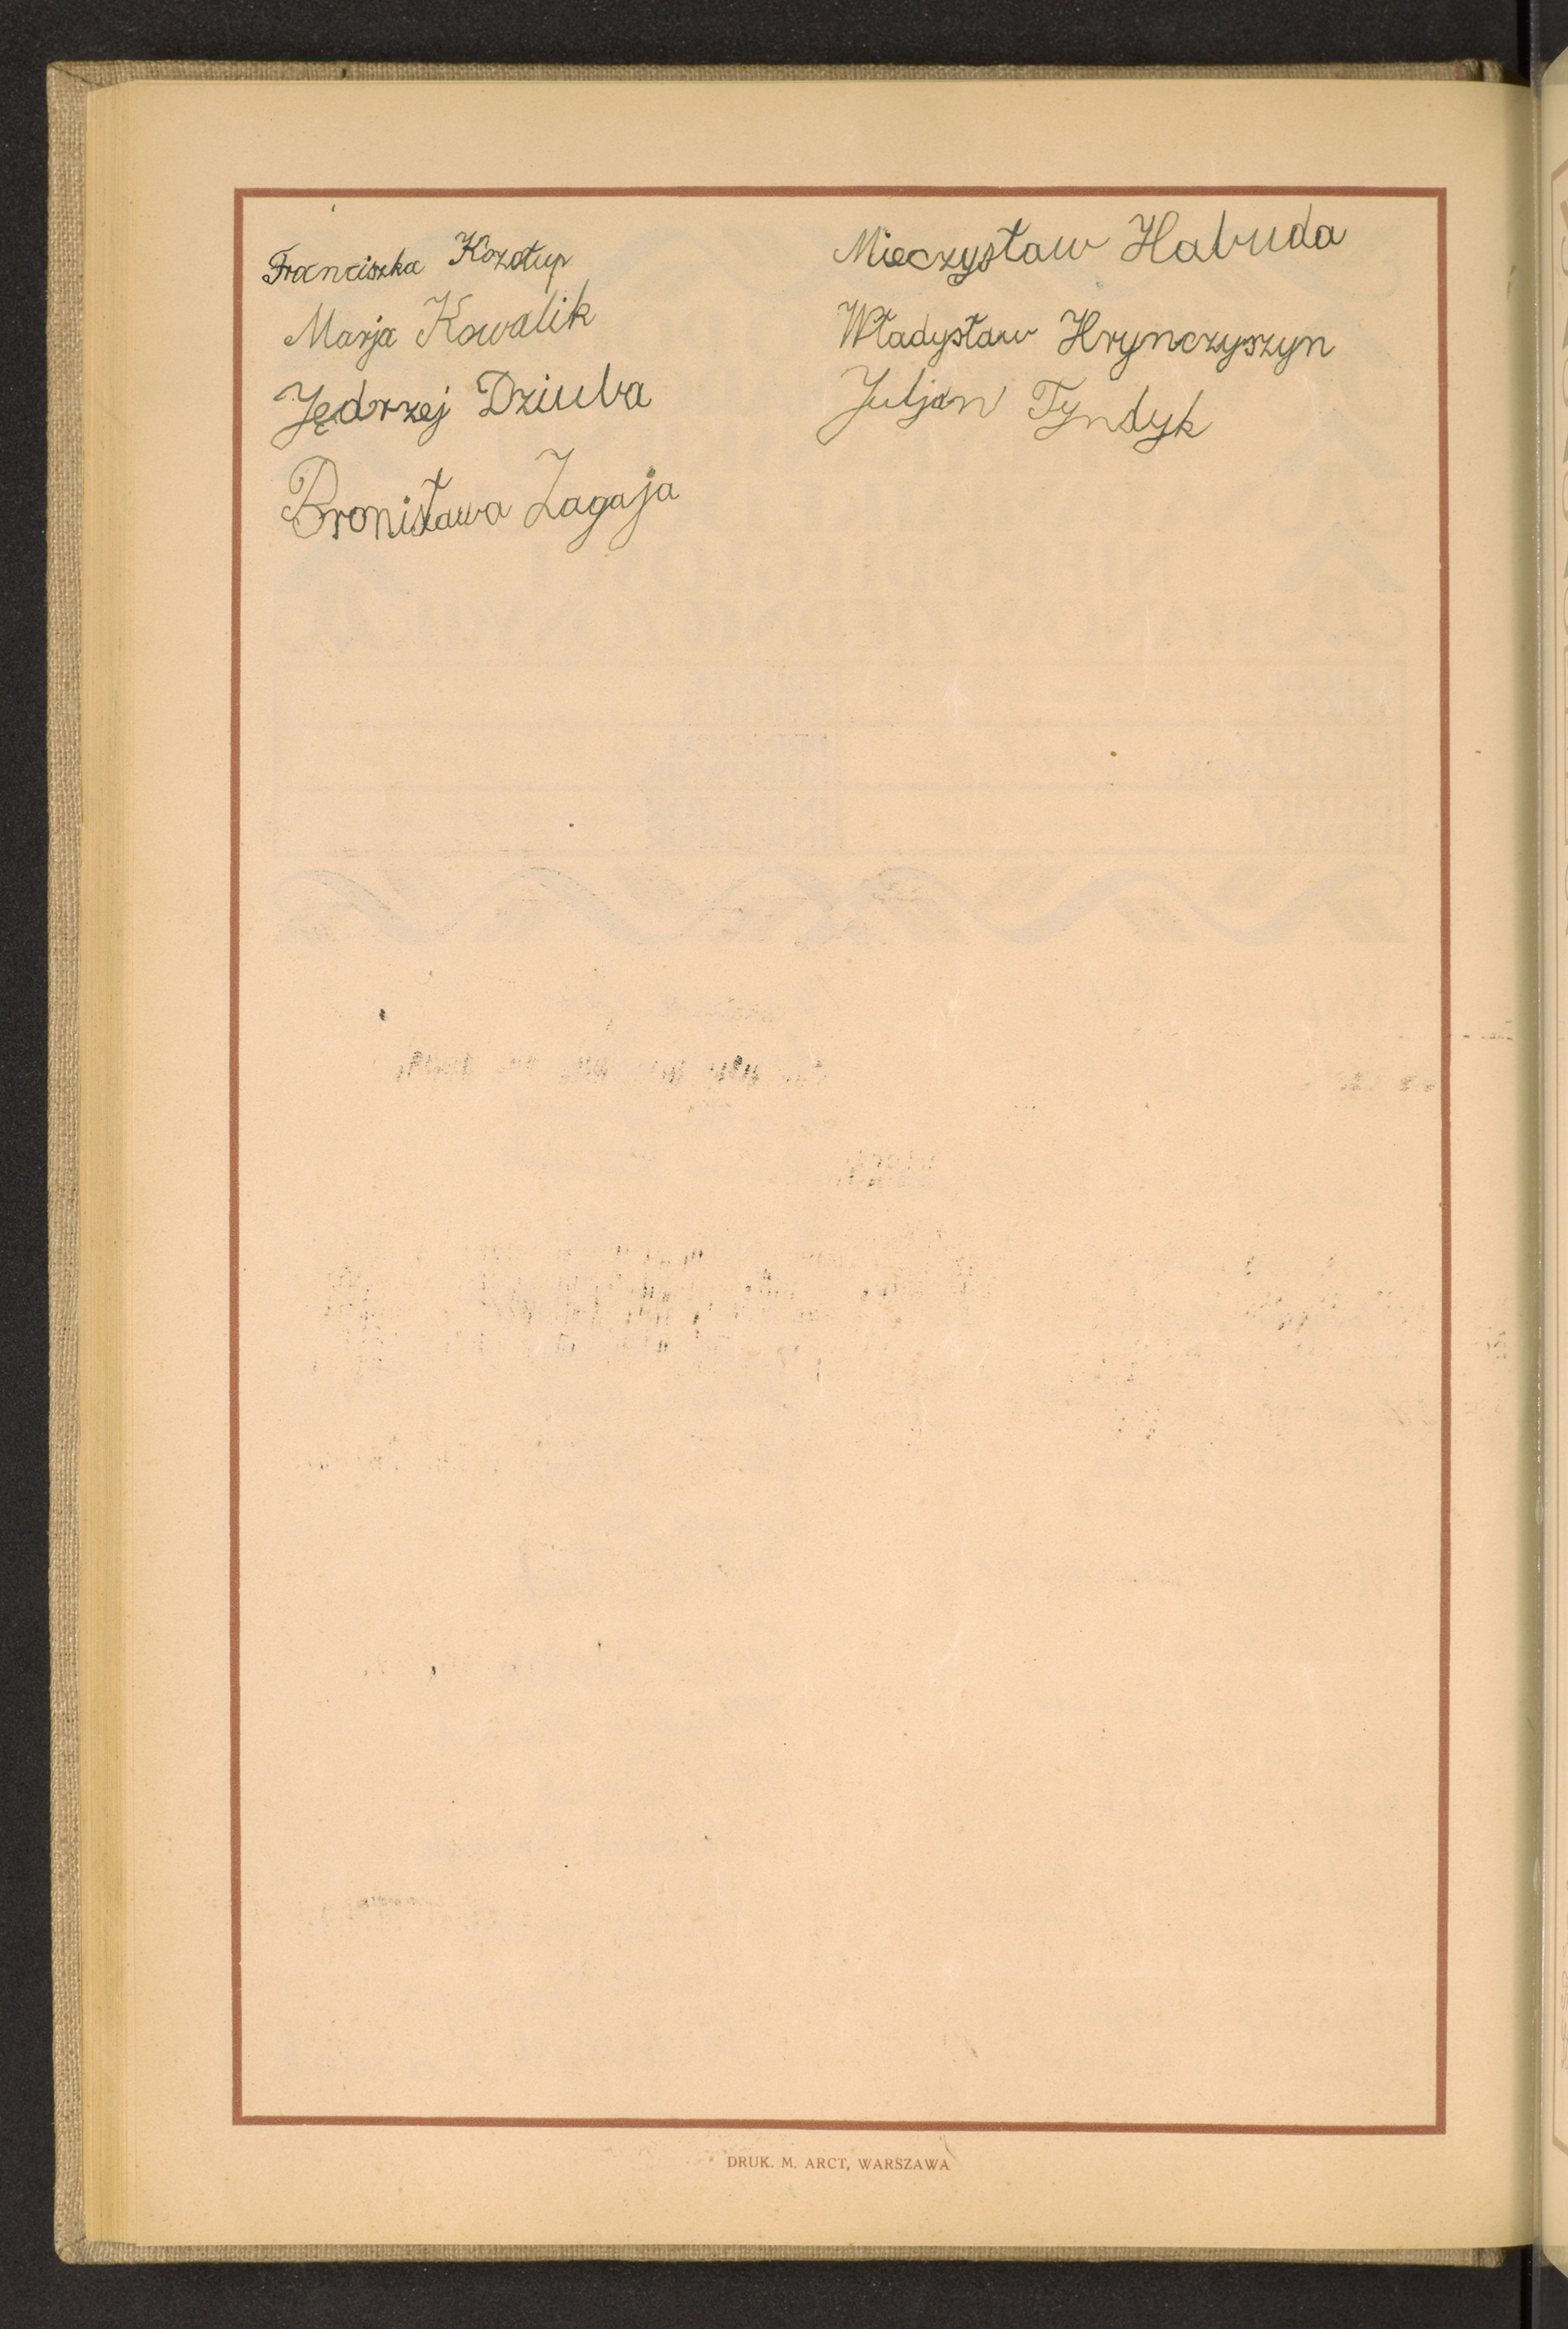 Franciszka Kozołup
Marja Kowalik
Jędrzej Dziuba
Bronisława Zagaja
Mieczysław Habuda
Władysław Hrynczyszyn
Juljan Tyndyk
DRUK. M. ARCT, WARSZAWA